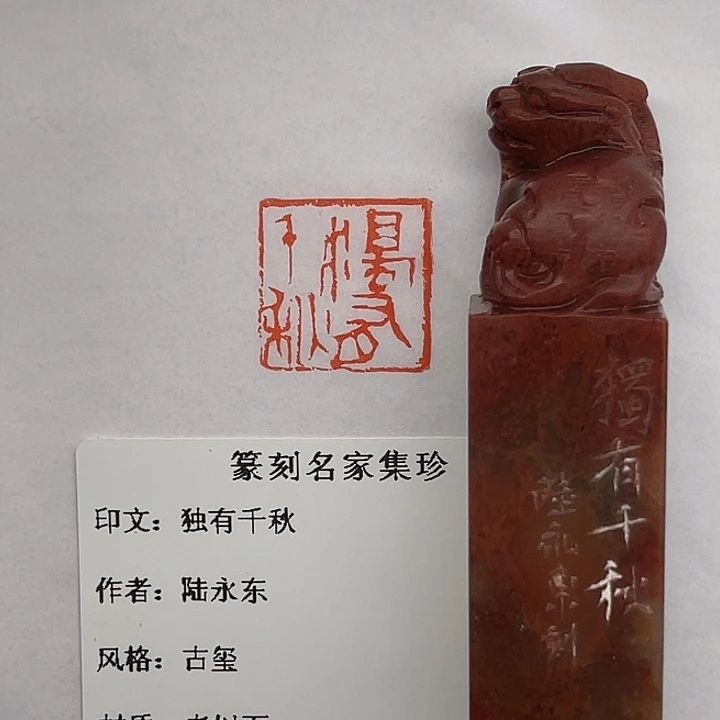 獨有千秋
陸永東刻
獨有千秋
篆刻名家集珍
印文：独有千秋
作者：陆永东
风格：古玺